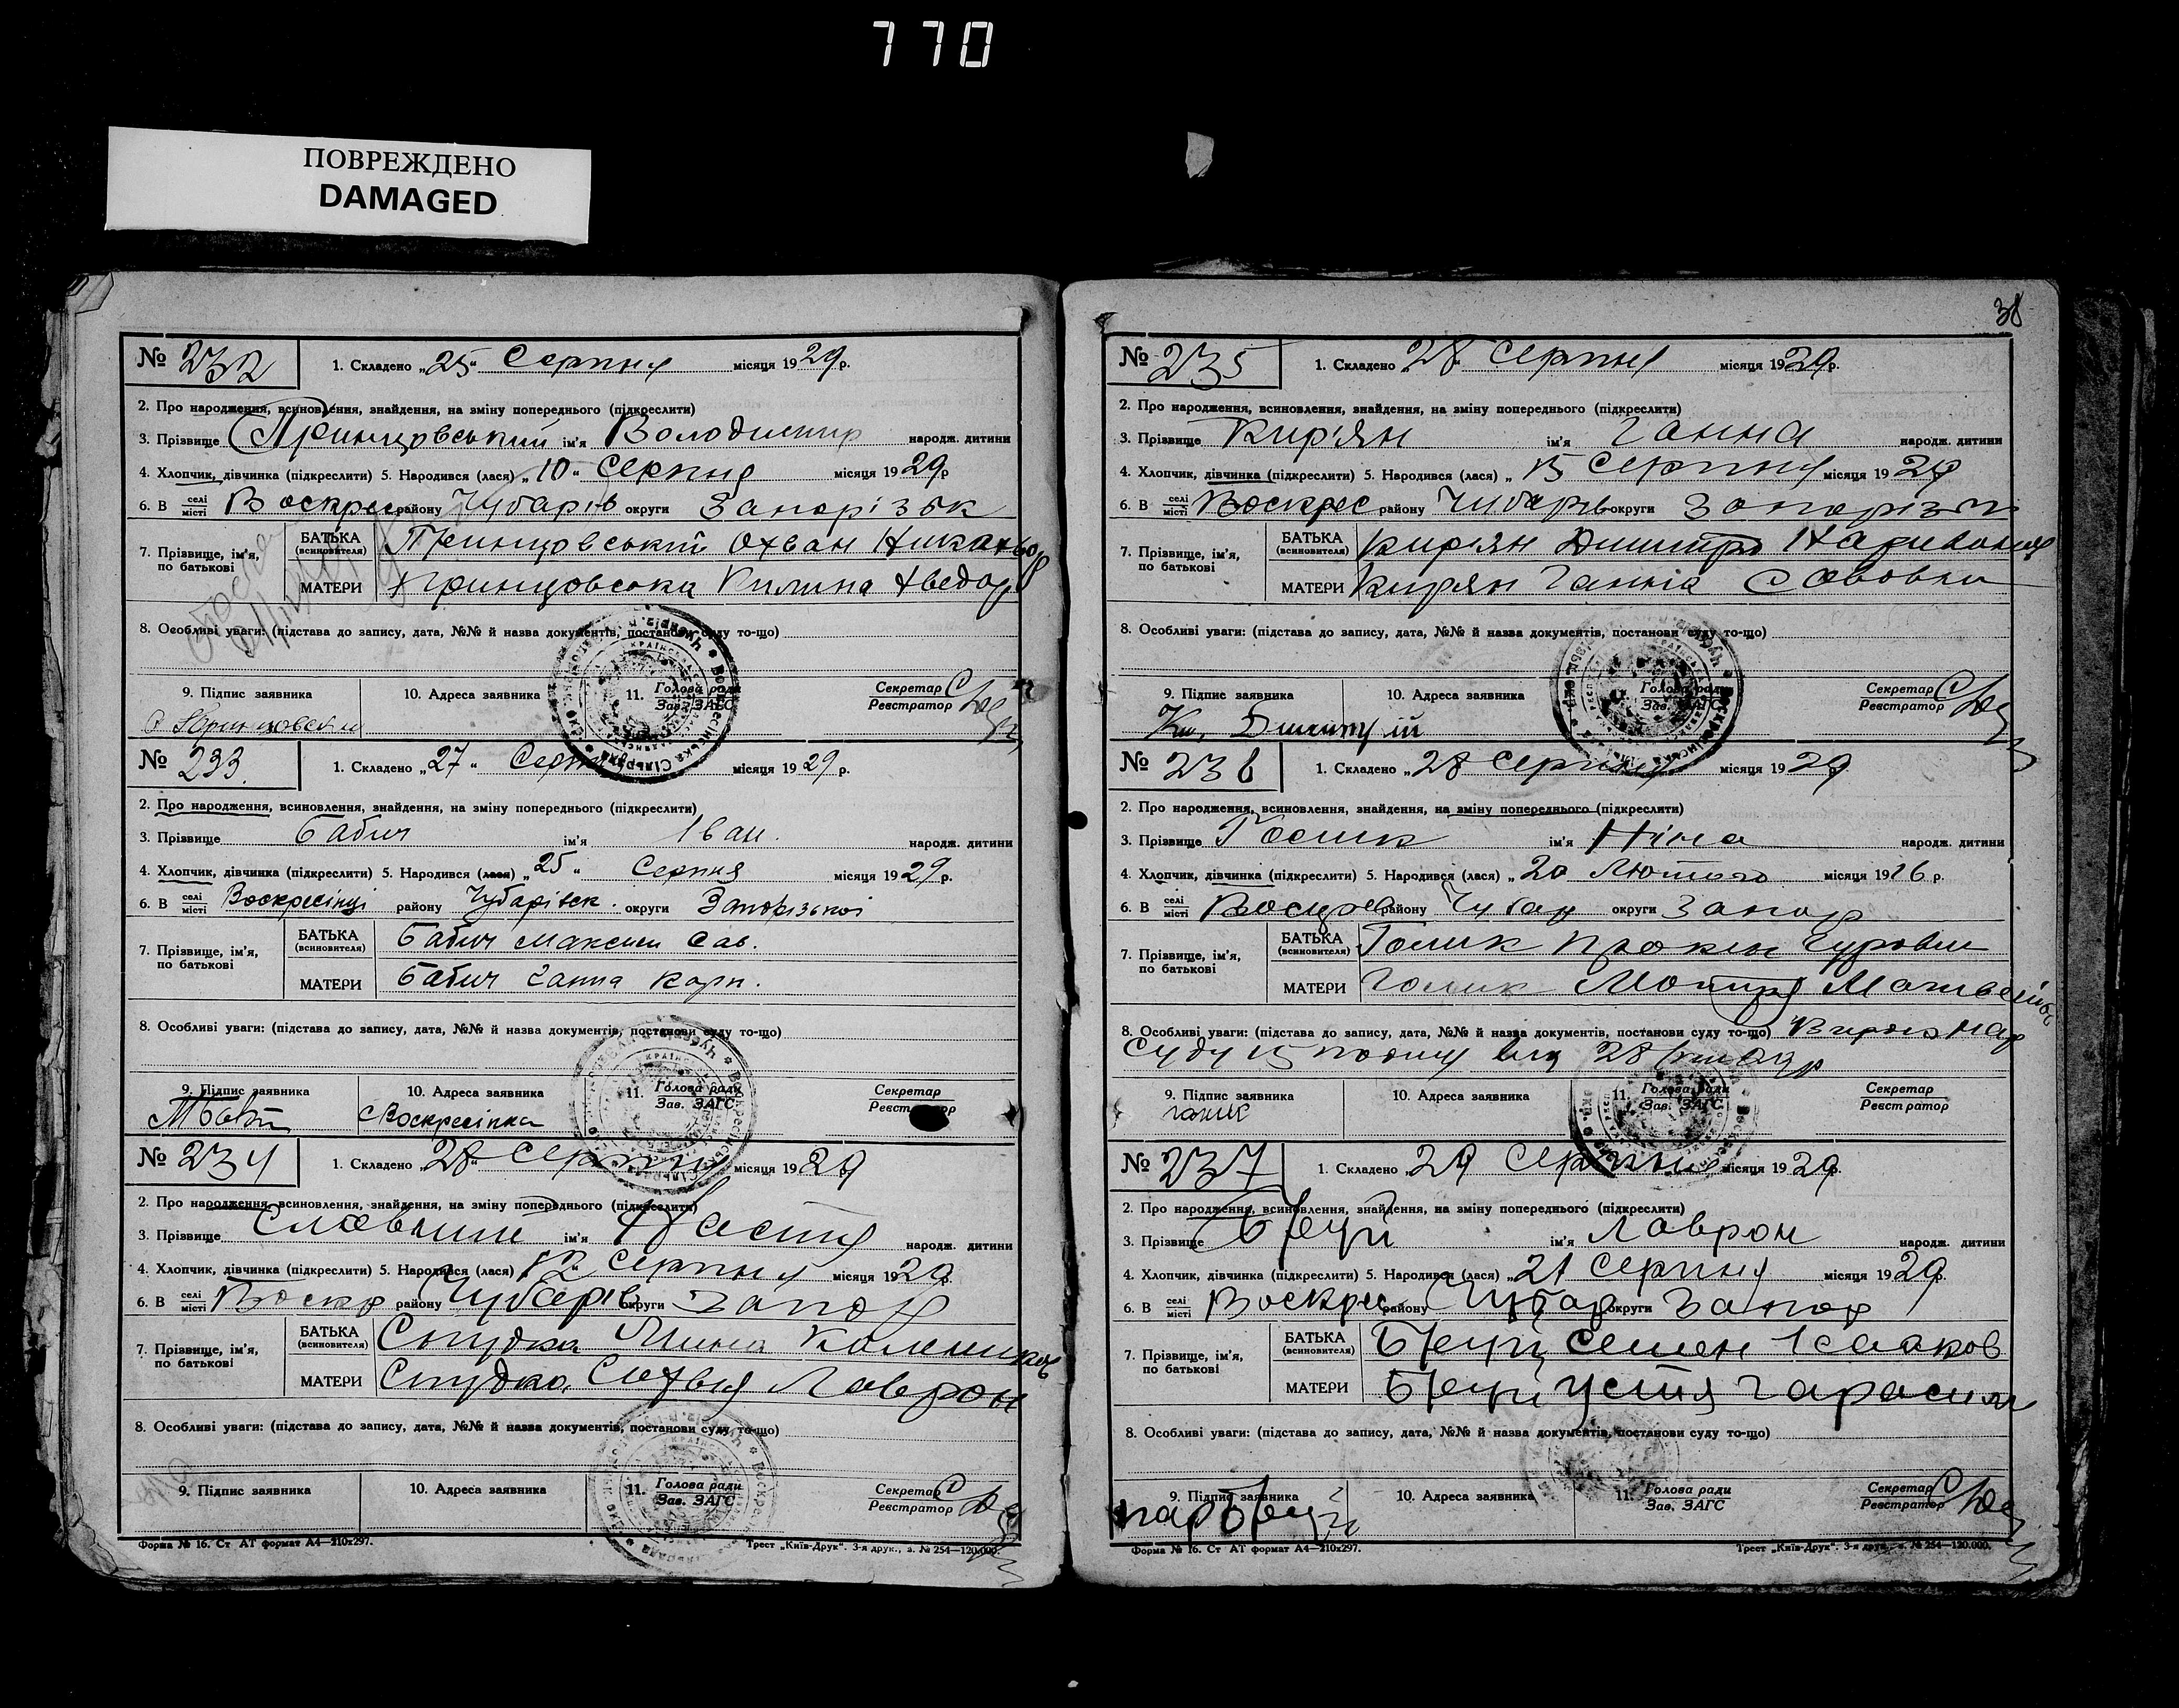 770
ПОВРЕЖДЕНО
DAMAGED
38
№ 232
1. Складено „25“ Серпня місяця 1929 р.
2. Про народження, всиновлення, знайдення, на зміну попереднього (підкреслити)
3. Прізвище Принцовський ім'я Володимир народж. дитини
4. Хлопчик, дівчинка (підкреслити) 5. Народився (лася) „10“ Серпня місяця 1929 р
6. В селі місті Воскрес району Чубарів округи Запорізьк
7. Прізвище, ім'я, по батькові
БАТЬКА (всиновителя) Принцовський Охван
МАТЕРИ Принцовська Килина Хведор
8. Особливі уваги: (підстава до запису, дата, №№ й назва документів, постанови суду то-що)
9. Підпис заявника 10. Адреса заявника 11. Голова ради Зав. ЗАГС Секретар Реєстратор
№ 233.
1. Складено „27“ Серпня місяця 1929 р.
2. Про народження, всиновлення, знайдення, на зміну попереднього (підкреслити)
3. Прізвище Бабич ім'я Іван. народж. дитини
4. Хлопчик, дівчинка (підкреслити) 5. Народився (лася) „25“ Серпня місяця 1929 р.
6. В селі місті Воскресінці району Чубарівськ. округи Запорізької
7. Прізвище, ім'я, по батькові
БАТЬКА (всиновителя) Бабич Максим Сав.
МАТЕРИ Бабич Ганна Карп.
8. Особливі уваги: (підстава до запису, дата, №№ й назва документів, постанови суду то-що)
9. Підпис заявника 10. Адреса заявника 11. Голова ради Зав. ЗАГС Секретар Реєстратор
Воскресінка
№ 234
1. Складено 28“ Серпня місяця 1929
2. Про народження, всиновлення, знайдення, на зміну попереднього (підкреслити)
3. Прізвище ім'я Настя народж. дитини
4. Хлопчик, дівчинка (підкреслити) 5. Народився (лася) 12 Серпня місяця 1929
6. В селі місті Воскр району Чубарів округи Запор
7. Прізвище, ім'я, по батькові
БАТЬКА (всиновителя)
МАТЕРИ Лаврон
8. Особливі уваги: (підстава до запису, дата, №№ й назва документів, постанови суду то-що)
9. Підпис заявника 10. Адреса заявника 11. Голова ради Зав. ЗАГС Секретар Реєстратор
Форма № 16. Ст АТ формат А4—210х297. Трест „Київ-Друк“. 3-я друк., з. № 254—120.000.
№ 235
1. Складено „28“ Серпня місяця 1929 р.
2. Про народження, всиновлення, знайдення, на зміну попереднього (підкреслити)
3. Прізвище Кир'ян ім'я Ганна народж. дитини
4. Хлопчик, дівчинка (підкреслити) 5. Народився (лася) „15 Серпня місяця 1929
6. В селі місті Воскрес району Чубарів округи Запорізьк
7. Прізвище, ім'я, по батькові
БАТЬКА (всиновителя) Кир'ян Дмитро
МАТЕРИ Кирян Ганна Савовна
8. Особливі уваги: (підстава до запису, дата, №№ й назва документів, постанови суду то-що)
9. Підпис заявника 10. Адреса заявника 11. Голова ради Зав. ЗАГС Секретар Реєстратор
№ 236
1. Складено „28 Серпня місяця 1929
2. Про народження, всиновлення, знайдення, на зміну попереднього (підкреслити)
3. Прізвище ім'я Ніна народж. дитини
4. Хлопчик, дівчинка (підкреслити) 5. Народився (лася) „20 Лютого місяця 1916 р.
6. В селі місті району Чубар округи Запор
7. Прізвище, ім'я, по батькові
БАТЬКА (всиновителя) Голик
МАТЕРИ Голик Мотря
8. Особливі уваги: (підстава до запису, дата, №№ й назва документів, постанови суду то-що)
Суду 28
9. Підпис заявника 10. Адреса заявника 11. Голова ради Зав. ЗАГС Секретар Реєстратор
№ 237
1. Складено 29 Серпня місяця 1929 р.
2. Про народження, всиновлення, знайдення, на зміну попереднього (підкреслити)
3. Прізвище ім'я Лаврон народж. дитини
4. Хлопчик, дівчинка (підкреслити) 5. Народився (лася) „21 Серпня місяця 1929 р.
6. В селі місті Воскрес району Чубар округи Запор
7. Прізвище, ім'я, по батькові
БАТЬКА (всиновителя) Семен Ісааков
МАТЕРИ Устя Гарасим
8. Особливі уваги: (підстава до запису, дата, №№ й назва документів, постанови суду то-що)
9. Підпис заявника 10. Адреса заявника 11. Голова ради Зав. ЗАГС Секретар Реєстратор
Форма № 16. Ст АТ формат А4—210х297. Трест „Київ-Друк“. 3-я друк., з. № 254—120.000.